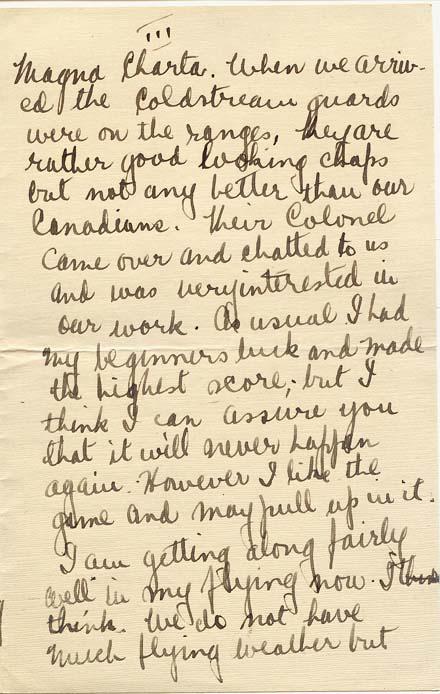 III
Magna Charta. When we arriv-
ed the Coldstream guards
were on the ranges, they are
rather good looking chaps
but not any better than our
Canadians. Their Colonel
came over and chatted to us
and was very interested in
our work. As usual I had
my beginners luck and made
the highest score; but I
think I can assure you
that it will never happen
again. However I like the
game and may pull up in it.
I am getting along fairly
well in my flying now. I
think. We do not have
much flying weather but